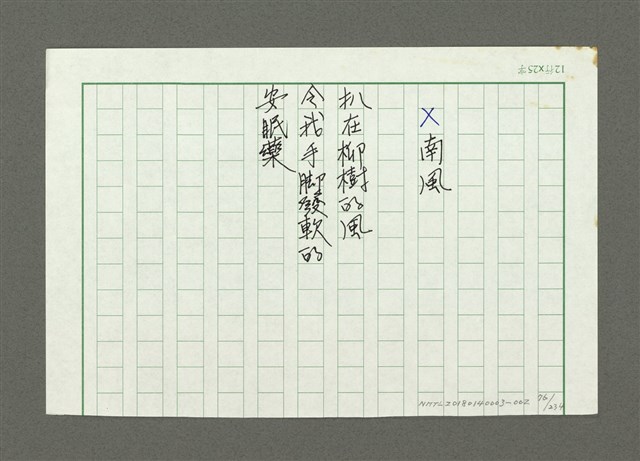 12行×25字
X南風
扒在柳樹的風
令我手腳發軟的
安眠藥
NMTL20180140003-002 76/234